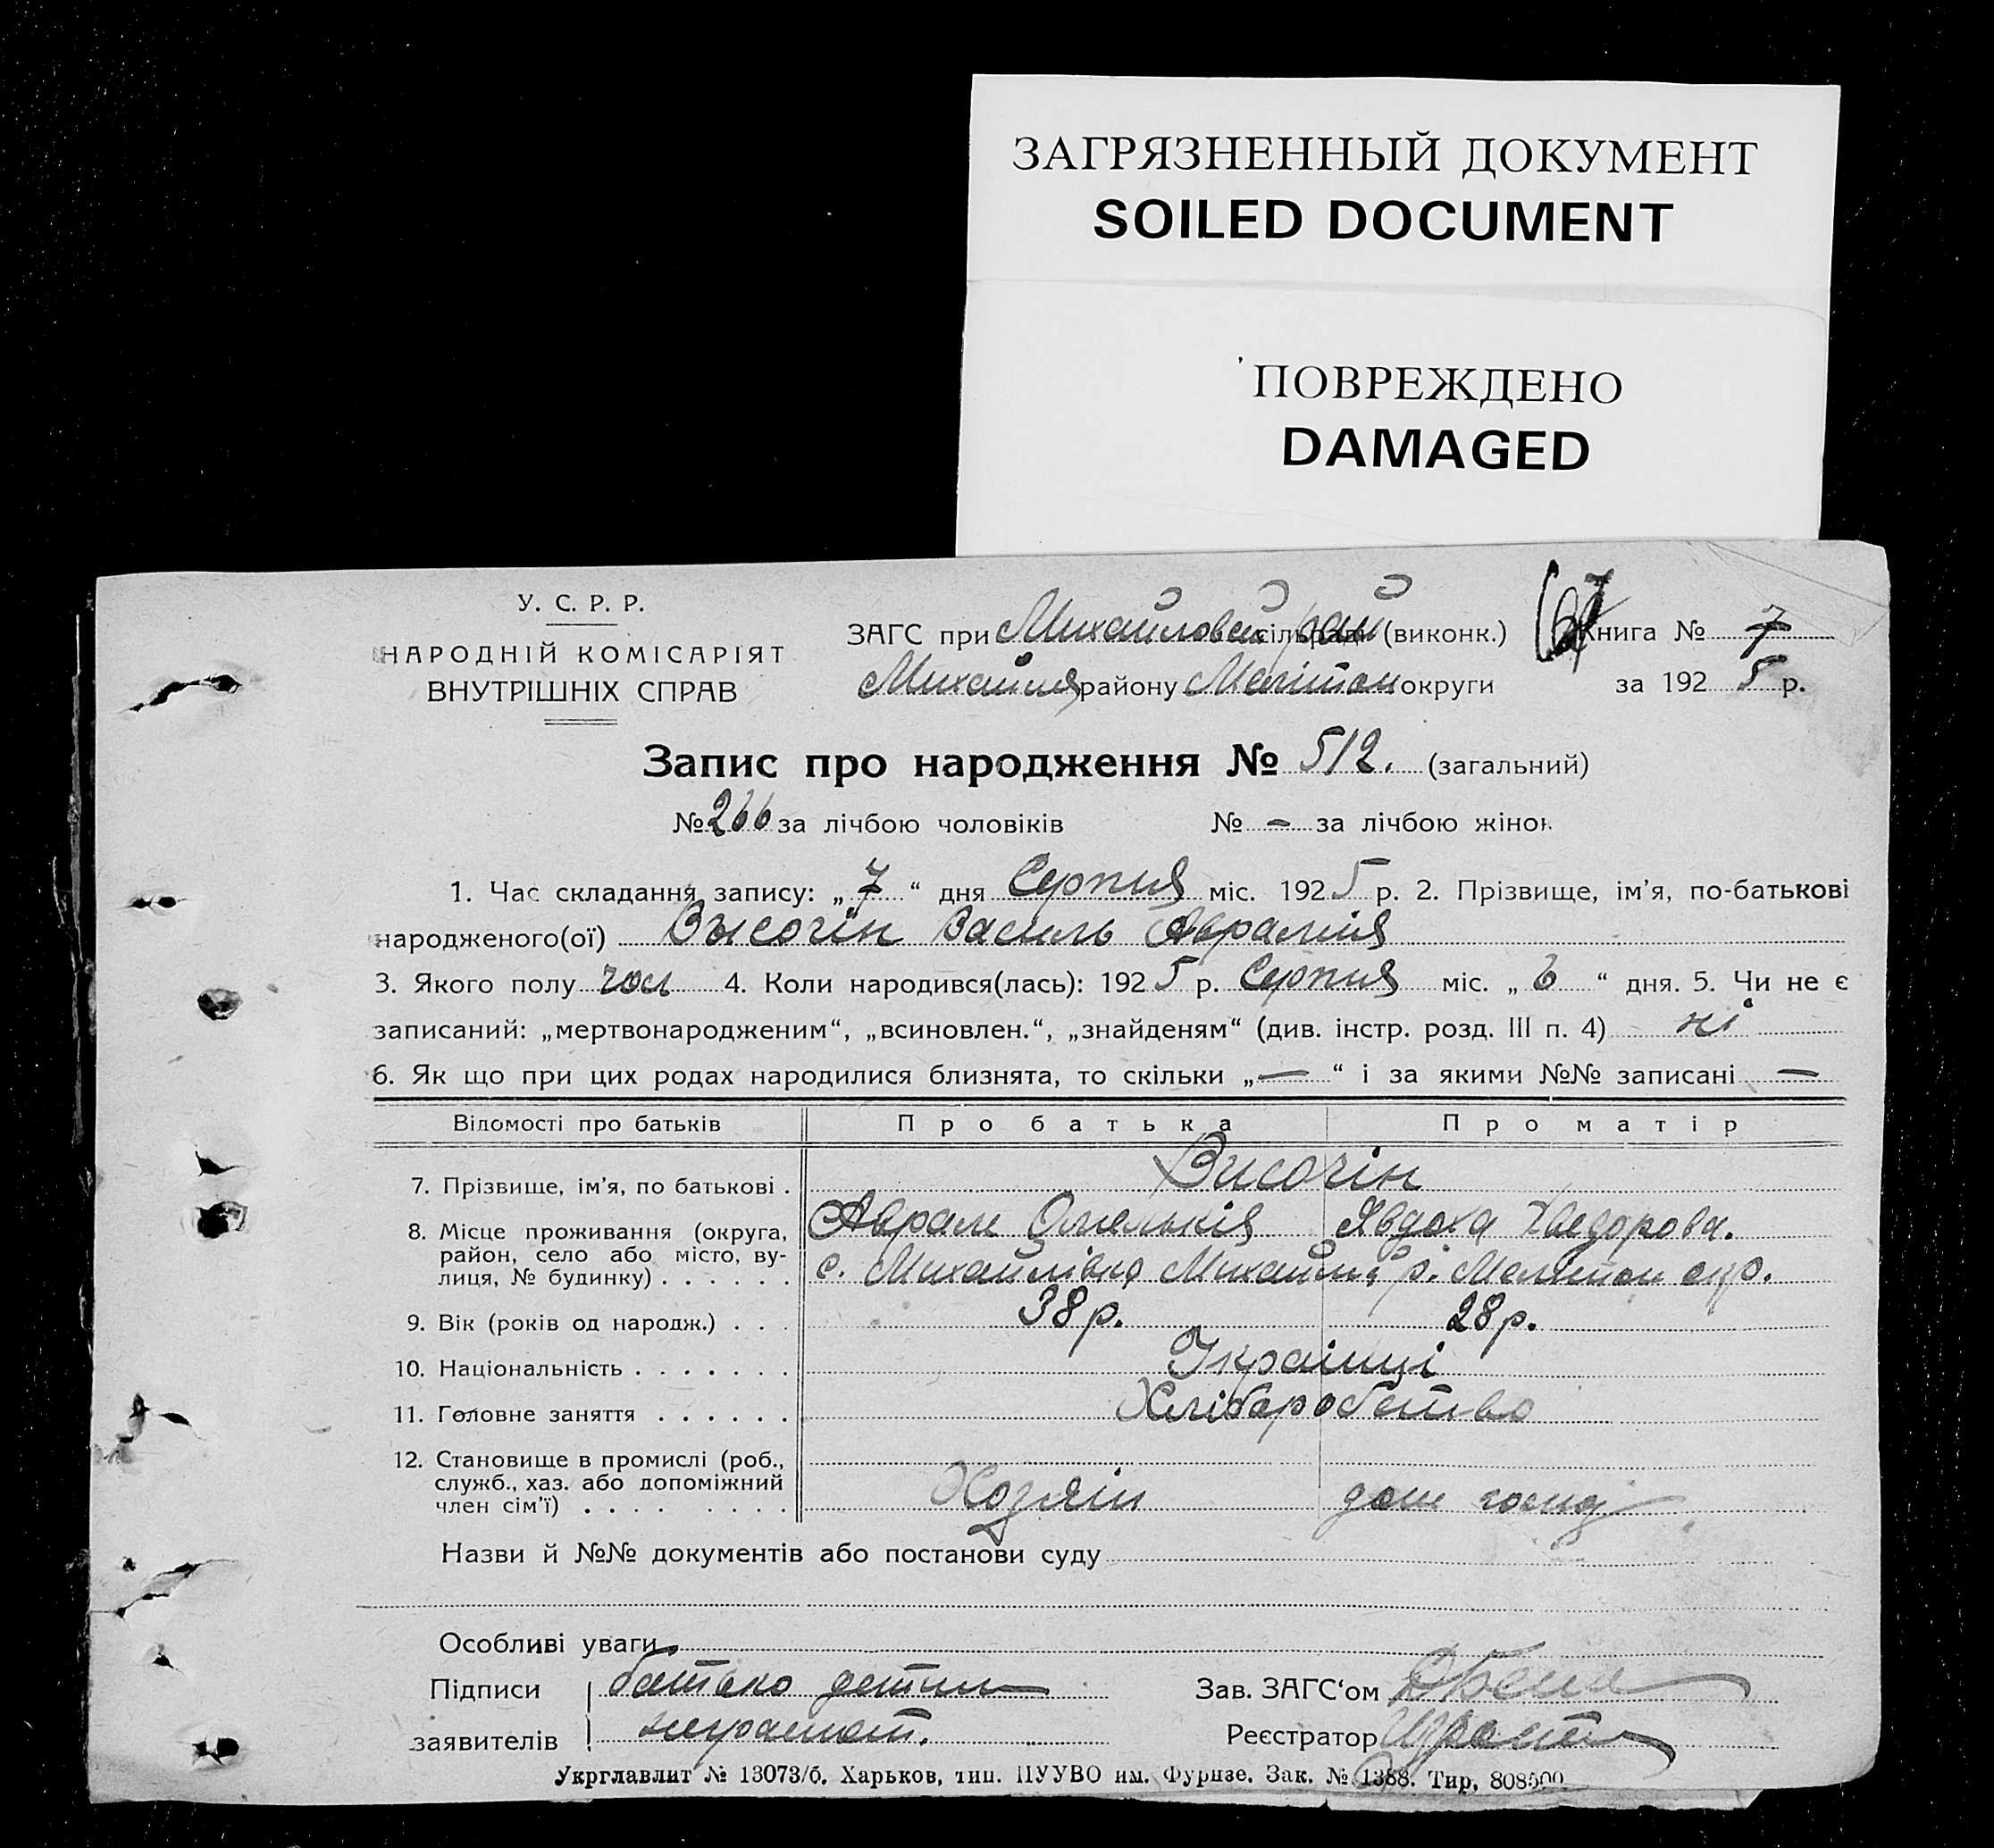 ЗАГРЯЗНЕННЫЙ ДОКУМЕНТ
SOILED DOCUMENT
ПОВРЕЖДЕНО
DAMAGED
У. С. Р. Р.
НАРОДНІЙ КОМІСАРІЯТ
ВНУТРІШНІХ СПРАВ
ЗАГС при Михайловськ сільраді рай (виконк.) Книга № 7
Михайлів району Меліто́п округи за 1925 р.
Запис про народження № 512. (загальний)
№ 266 за лічбою чоловіків № – за лічбою жінок
1. Час складання запису: „7“ дня Серпня міс. 1925 р. 2. Прізвище, ім’я, по-батькові
народженого(ої) Высочін Василь Аврамів
3. Якого полу чол 4. Коли народився(лась): 1925 р. Серпня міс. „6“ дня. 5. Чи не є
записаний: „мертвонародженим“, „всиновлен.“, „знайденям“ (див. інстр. розд. III п. 4) ні
6. Як що при цих родах народилися близнята, то скільки „—“ і за якими №№ записані —
Відомості про батьків Про батька Про матір
7. Прізвище, ім’я, по батькові . Височін
8. Місце проживання (округа, Аврам Омельків Явдоха Хведорова.
район, село або місто, ву-
лиця, № будинку) . . . . . . с. Михайлівка Михайлів р. Мелітоп окр.
9. Вік (років од народж.) . . . 38 р. 28 р.
10. Національність . . . . . . . Українці
11. Головне заняття . . . . . . Хліборобство
12. Становище в промислі (роб.,
служб., хаз. або допоміжний
член сім’ї) . . . . . . . . Хозяїн дом госпд
Назви й №№ документів або постанови суду
Особливі уваги
Підписи батько детин Зав. ЗАГС‘ом
заявителів неграмот. Реєстратор
Укрглавлит № 13073/б. Харьков, тип. ПУУВО им. Фрунзе. Зак. № 1388. Тир. 808500